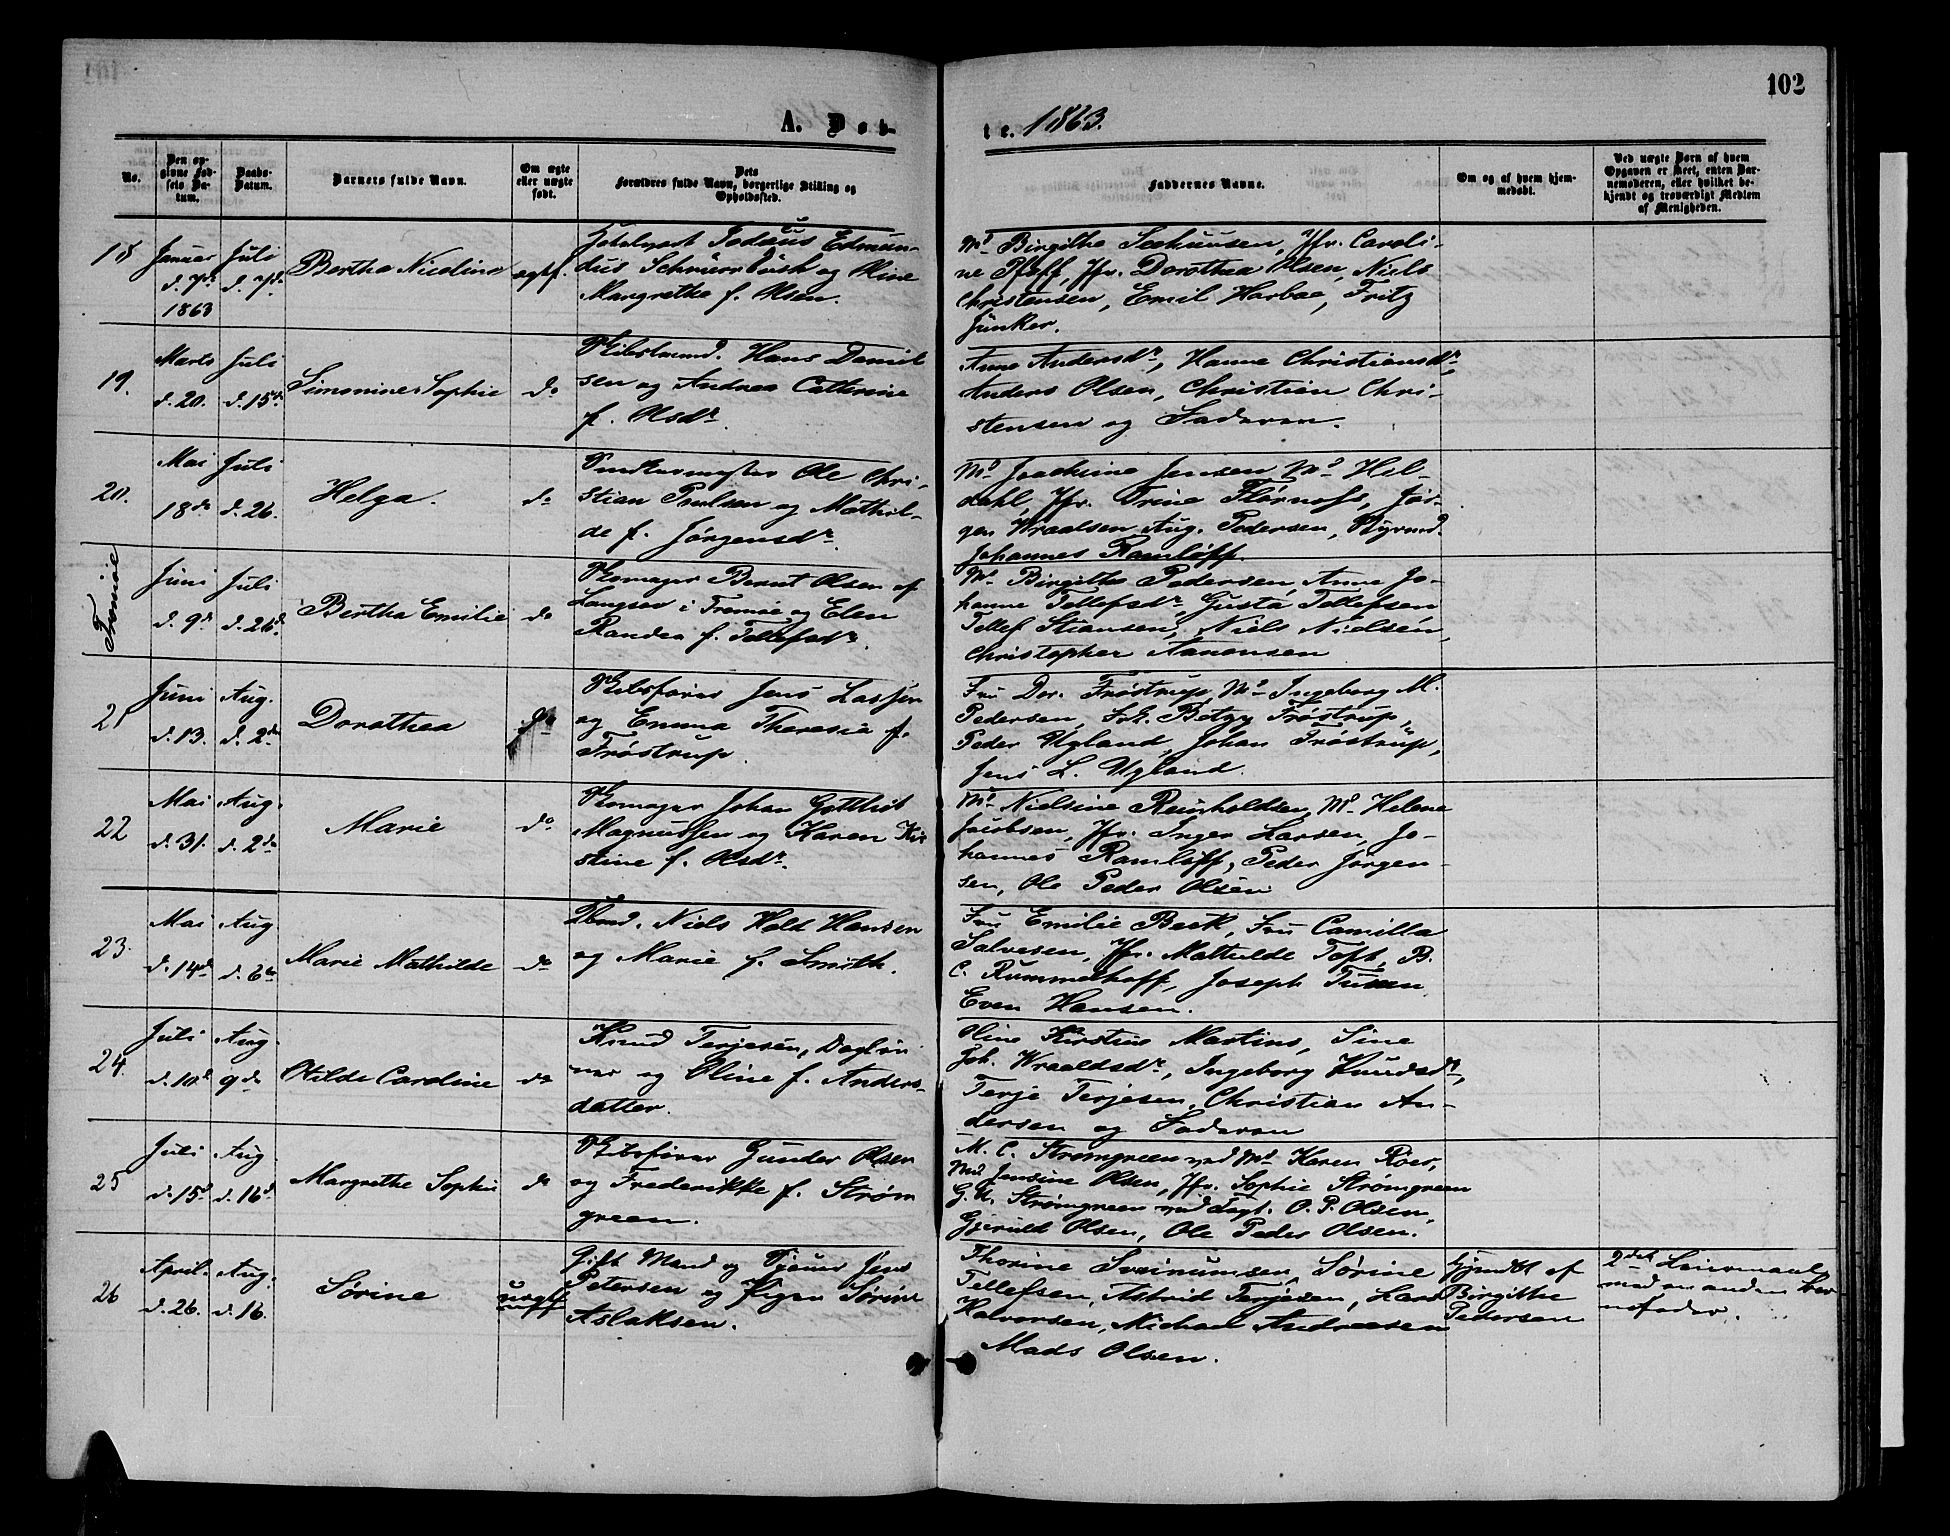 102
A. Døb-
te. 1863.
No.
Den op-
givne Fød-
sels Da-
tum.
Daabs-
Datum.
Barnets fulde Navn.
Om ægte
eller uægte
født.
Dets
Forældres fulde Navn, borgerlige Stilling og
Opholdssted.
Faddernes Navne.
Om og af hvem hjem-
medøbt.
Ved uægte Børn af hvem
Opgaven er skeet, enten Bar-
nemoderen, eller hvilket be-
kjendt og troværdigt Medlem
af Menigheden.
18
Januar
d. 7de
1863
Juli
d. 7de
Bertha Nicoline
ægtf.
Edmun-
dus og Oline
Margrethe f. Olsen.
Md Birgithe Jfr. Caroli-
ne Pfeff, Jfr. Dorothea Olsen, Niels
Christensen, Emil Harboe, Fritz
Junker.
19.
Marts
d. 20.
Juli
d. 15de
Simonine Sophie
do
Skibstømmd. Hans Daniel
sen og Andrea Cathrine
f. Olsdr.
Anne Andersdr, Hanne Christiansdr,
Anders Olsen, Christian Chri-
stensen og Faderen.
20.
Mai
18de
Juli
d. 26.
Helga.
do
Ole Chri-
stian Poulsen og Mathil-
de f. Jørgensdr.
Md Joachime Jensen Md Hil-
dahl, Jfr. Trine Jør-
gen Wraalsen Aug. Pedersen, Styrmd.
Johannes Ramløff.
Tromøe
Juni
d. 9d
Juli
d. 26d
Bertha Emilie
do
Skomager Bernt Olsen af
Langsæv i Tromøe og Elen
Randea f. Tellefsdr.
Md Birgithe Pedersen, Anne Jo-
hanne Tellefsdr, Gusta Tellefsen
Tellef Stiansen, Niels Nielsen,
Christopher Aanonsen
21
Juni
d. 13.
Aug.
d. 2de
Dorothea
do
Skibsfører Jens Lassen
og Emma Theresia f.
Frøstrup.
Fru Dor. Frøstrup, Md Ingeborg M.
Pedersen, Frk. Betzy Frøstrup,
Peder Ugland, Johan Frøstrup,
Jens L. Ugland.
22
Mai
d. 31.
Aug.
d. 2de
Marie
do
Skomager Johan Gottlieb
Magnussen og Karen Kir
stine f. Olsdr.
Md Nielsine Reinholdsen, Md Helene
Jacobsen, Jfr. Inger Larsen, Jo-
hannes Ramløff, Peder Jørgen-
sen, Ole Peder Olsen
23.
Mai
d. 14d
Aug
d. 6te
Marie Mathilde
do
Niels Hold Hansen
og Marie f. Smith.
Fru Emilie Beck, Fru Camilla
Salvesen, Jfr. Mathilde Toft, B.
C. Rummelhoff, Joseph
Even Hansen.
24.
Juli
d. 10d
Aug.
9de
Otilde Caroline
do
Knud Terjesen, Dagløn
ner og Oline f. Anders-
datter.
Oline Kirstine Martins, Sine
Joh. Wraaldsdr, Ingeborg Knudsdr,
Terje Terjesen, Christian An-
dersen og Faderen
25
Juli
d. 15d
Aug.
d. 16d
Margrethe Sophie
do
Skibsfører Gunder Olsen
og Frederikke f. Strøm
green.
M. C. Strømgreen ved Md Karen Roer,
Md Jensine Olsen, Jfr. Sophie Strømgreen
G. A. Strømgreen ved Fogt. O. P. Olsen,
Gjeruld Olsen, Ole Peder Olsen.
26
April.
d. 26.
Aug.
d. 16.
Sørine
uægte
Gift Mand og Tjener Jens
Petersen og Pigen Sørine
Aslaksen.
Thorine Sveinumsen, Sørine
Tellefsen, Astrid Terjesen, Lars
Halvorsen, Michael Andreasen
Mads Olsen.
Hjemdøbt af
Birgithe
Pedersen
2det Leiermaal
med en anden Bar
nefader.